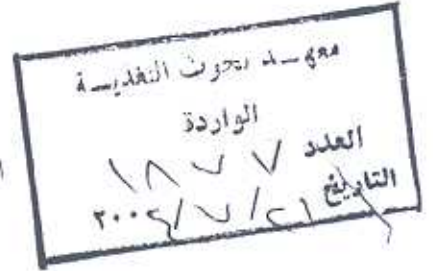 معهــد بحوث التغذيــة
الواردة
العدد ١٨٧٧
التاريخ ٢١/٧/٢٠٠٢